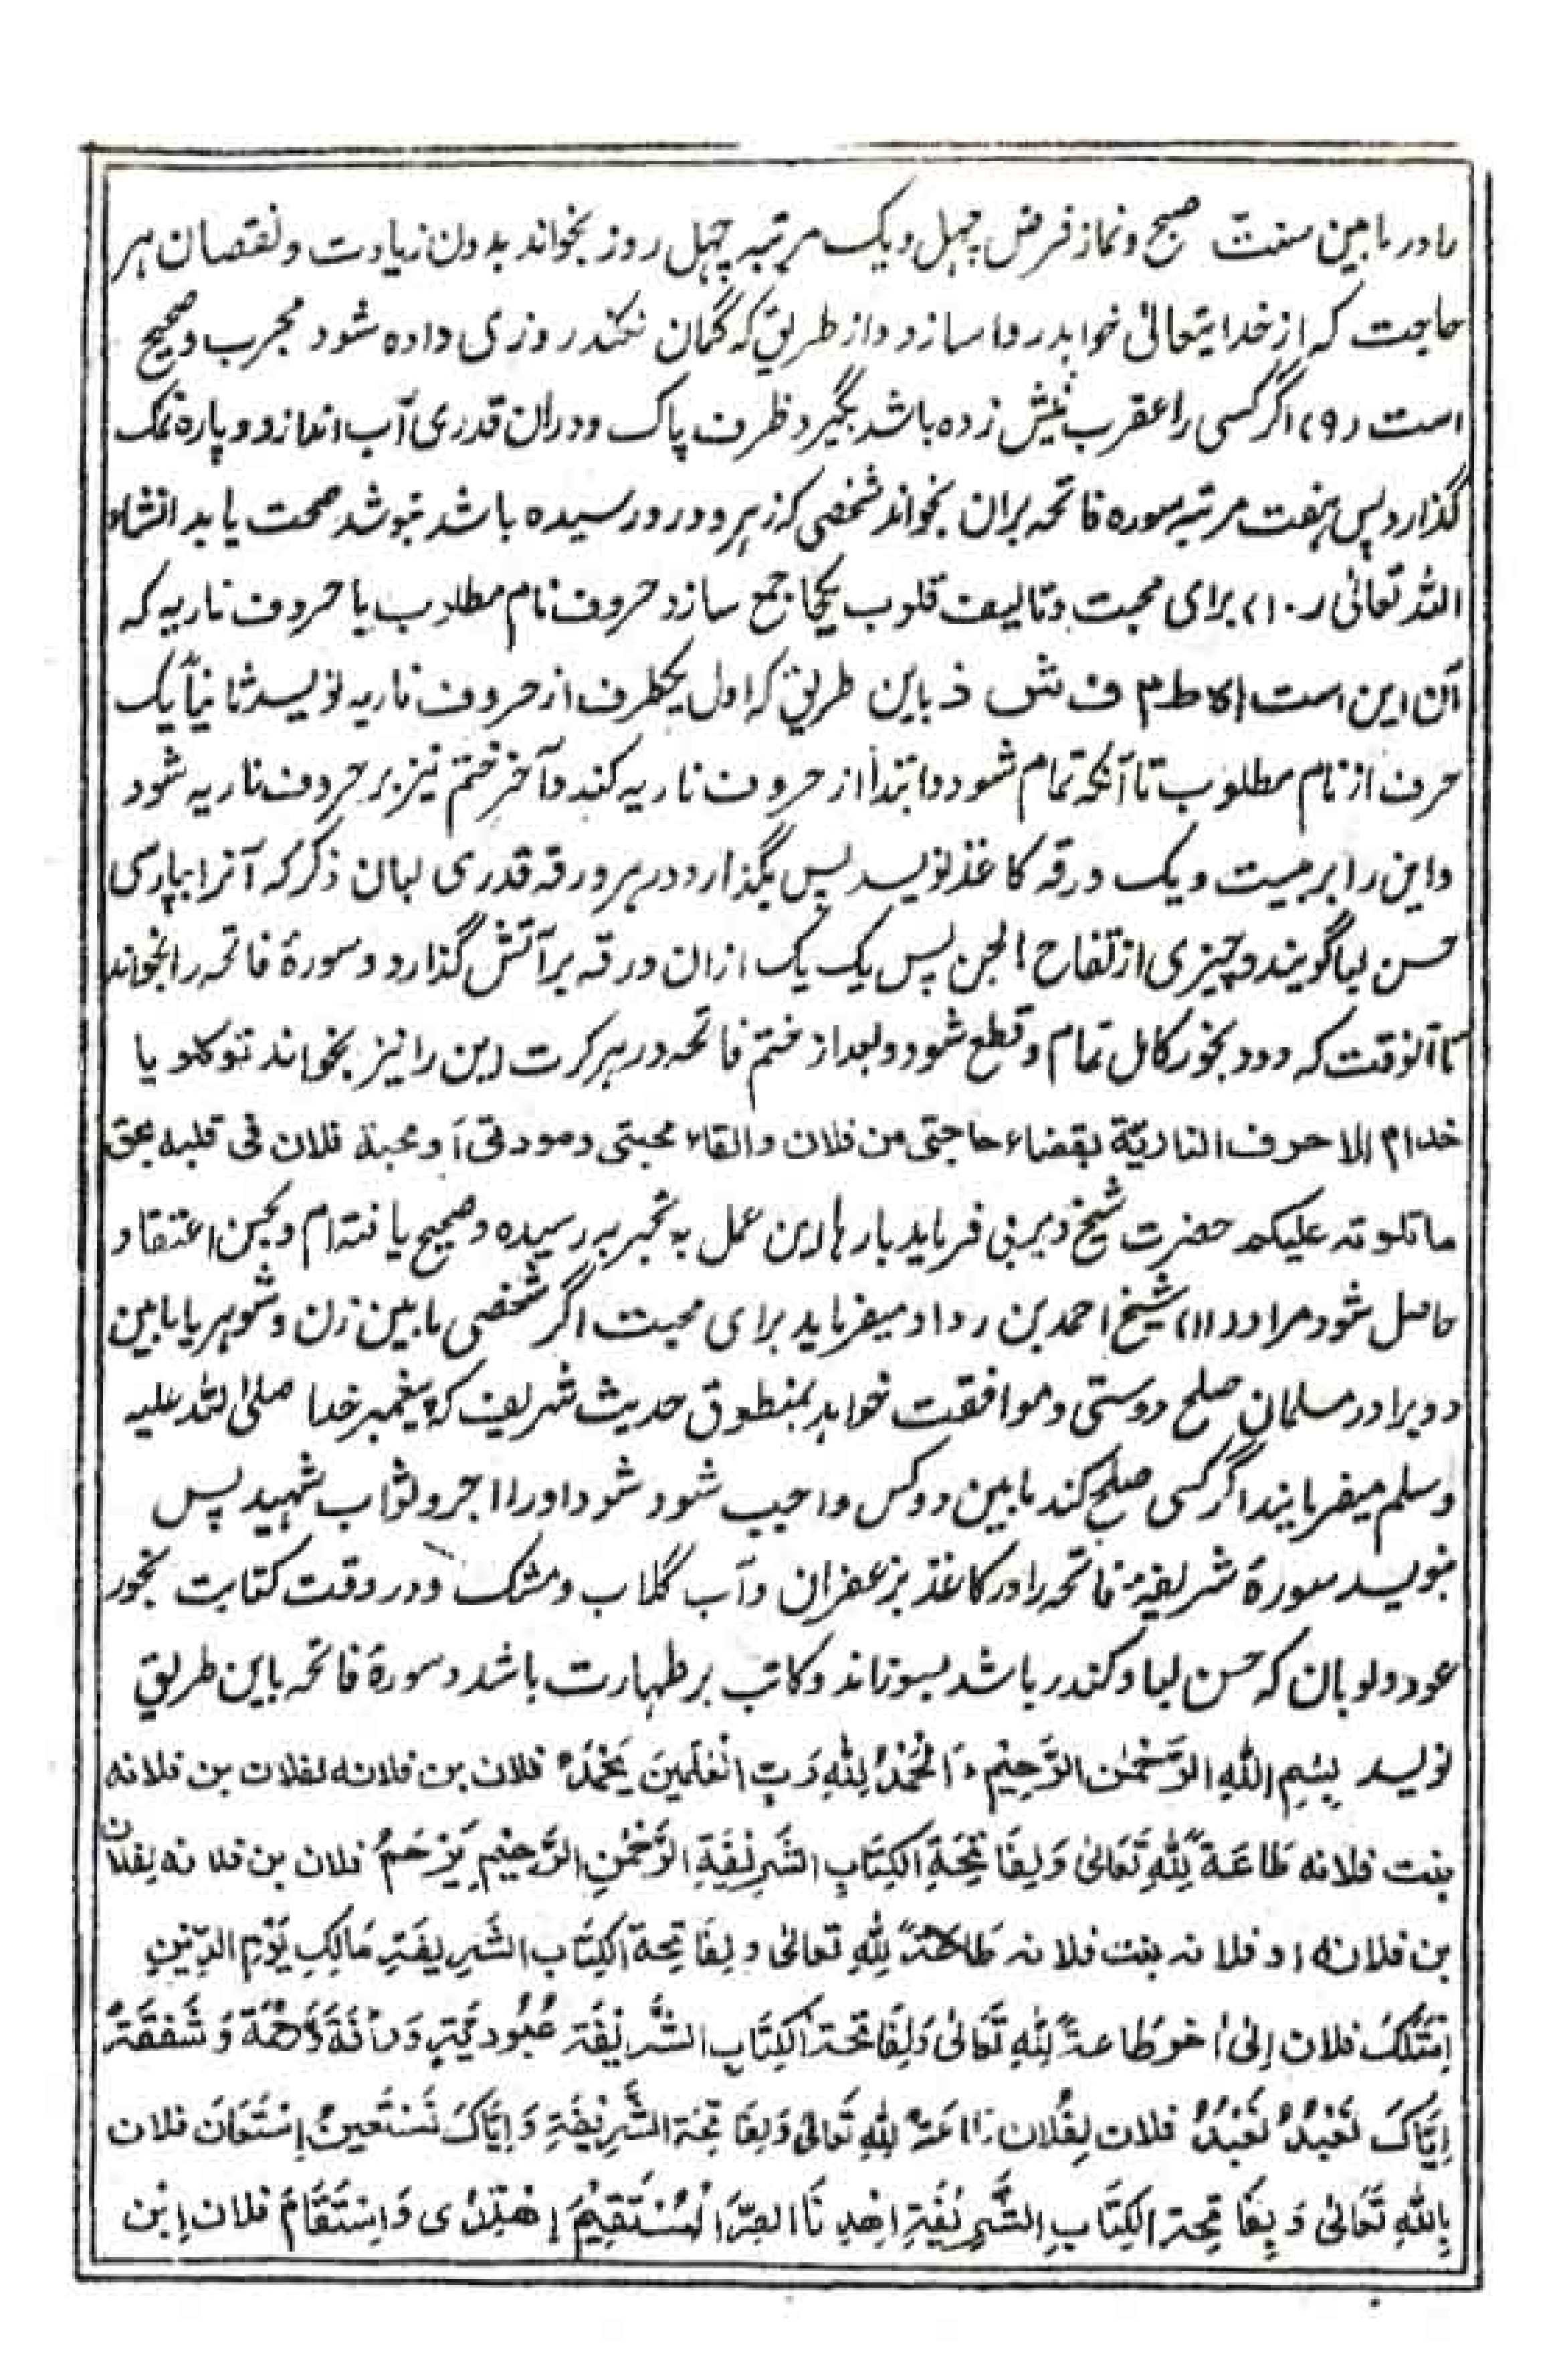 را در مابین سنت صبح و نماز فرض چهل و یک مرتبه چهل روز بخواند بدون زیادت و نقصان هر
حاجت که از خدایتعالیٰ خواهد روا سازد و از طریق که گمان نکند روزی داده شود مجرب و صحیح
است (۹) اگر کسی را عقرب نیش زده باشد بگیرد ظرف پاک و دران قدری آب اندازد و پاره نمک
گذارد پس هفت مرتبه سوره فاتحه بران بخواند شخصی که زهر و درد رسیده باشد بنوشد صحت یابد انشاء
الله تعالیٰ (۱۰) برای محبت و تالیف قلوب یکجا جمع سازد حروف نام مطلوب با حروف ناریه که
آن این است ا ه ط م ف ش ذ باین طریق که اول یکحرف از حروف ناریه نویسد ثانیاً یک
حرف از نام مطلوب تا آنکه تمام شود و ابتدا از حروف ناریه کند و آخر ختم نیز بر حروف ناریه شود
و این را بر بیست و یک ورقه کاغذ نویسد پس بگذارد در هر ورقه قدری لبان ذکر که آنرا بپارسی
حسن لبا گویند و چیزی از تفاح الجن پس یک یک ازان ورقه بر آتش گذارد و سورهٔ فاتحه را بخواند
تا آنوقت که دود بخور کامل تمام و قطع شود و بعد از ختم فاتحه در هر کرت این را نیز بخواند توکلو یا
خدام الاحرف الناریّة بقضاء حاجتی من فلان والقاء محبتی و مودتی أو محبة فلان فی قلبه بحق
ما تلوته علیکم حضرت شیخ دیربی فرماید بارها این عمل به تجربه رسیده و صحیح یافته ام و بحسن اعتقاد
حاصل شود مراد (۱۱) شیخ احمد بن رداد میفرماید برای محبت اگر شخصی مابین زن و شوهر یا مابین
دو برادر مسلمان صلح دوستی و موافقت خواهد بمنطوق حدیث شریف که پیغمبر خدا صلی الله علیه
وسلم میفرمایند اگر کسی صلح کند مابین دو کس واجب شود شود او را اجر و ثواب شهید پس
بنویسد سورهٔ شریفهٔ فاتحه را در کاغذ بزعفران و آب گلاب و مشک و در وقت کتابت بخور
عود و لوبان که حسن لبا و کندر باشد بسوزاند و کاتب بر طهارت باشد و سورهٔ فاتحه باین طریق
نویسد بِسْمِ اللهِ الرَّحْمٰنِ الرَّحِیْمِ اَلْحَمْدُ لِلّٰهِ رَبِّ الْعٰلَمِیْنَ یَحْمَدُ فلان بن فلانه لفلان بن فلانه
بنت فلانه طَاعَةً لِلّٰهِ تَعَالیٰ وَلِفَاتِحَةِ الْکِتَابِ الشَّرِیْفَةِ الرَّحْمٰنِ الرَّحِیْمِ یَرْحَمُ فلان بن فلانه لِفلان
بن فلانه او فلانه بنت فلانه طَاعَةً لِلّٰهِ تعالیٰ ولِفَاتِحَةِ الْکِتَاب الشَّرِیفَةِ مَالِکِ یَوْمِ الدِّیْنِ
فلان اِلیٰ طَاعةً لِلّٰهِ تَعَالیٰ وَلِفَاتِحَة الْکِتَابِ الشَّرِیْفَة عُبُودِیَّةٍ وَرَأْفَةً وَرَحْمَة وَشَفَقَةً
اِیَّاکَ نَعْبُدُ فلان لِفُلان لِلّٰهِ تَعَالیٰ وَلِفَاتِحَة الشَّرِیْفَةِ وَاِیَّاکَ نَسْتَعِیْنُ اِسْتَعَانَ فلان
بِاللهِ تَعَالیٰ وَبِفَاتِحَة الْکِتَابِ الشَّرِیْفَةِ اِهْدِنَا الصِّرَاطَ الْمُسْتَقِیْمَ اِهْتَدٰی وَاسْتَقَامَ فلان اِبْن